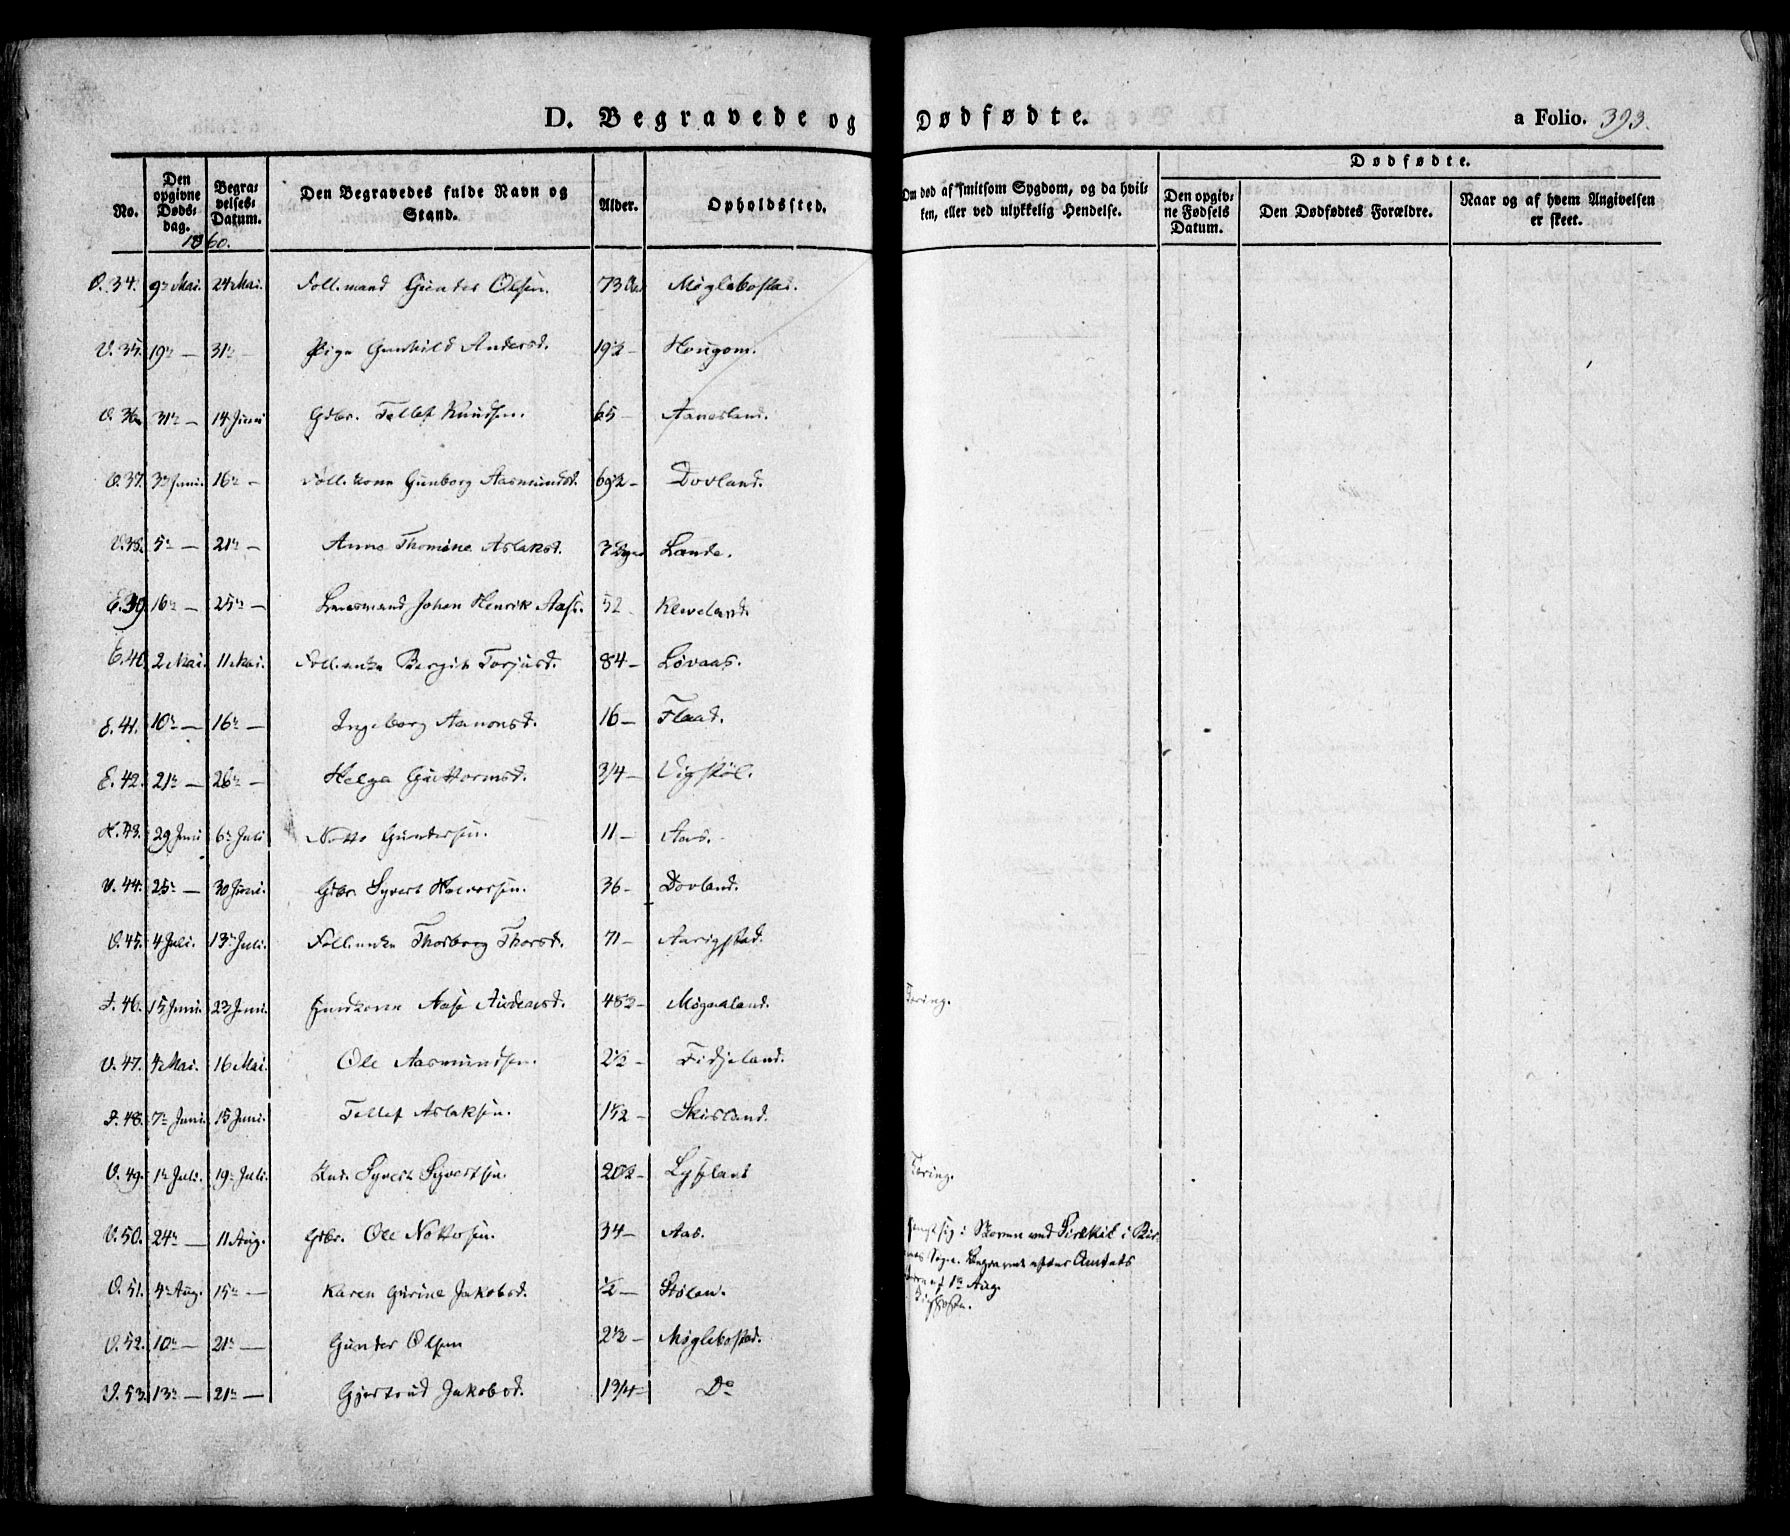 D. Begravede og Dødfødte. a Folio. 393.
No.
Den opgivne Døds-dag.
Begra-velses-Datum.
Den Begravedes fulde Navn og Stand.
Alder.
Opholdssted.
Om død af smitsom Sygdom, og da hvil-ken, eller ved ulykkelig Hendelse.
Dødfødte.
Den opgiv-ne Fødsels Datum.
Den Dødfødtes Forældre.
Naar og af hvem Angivelsen er skeet.
1860.
V. 34. 9de Mai. 24 Mai. Follmand Gunder Olsen. 73 Møglebostad.
V. 35. 19de — 31te — Pige Gunhild Andersd. 19½ — Hougom.
V. 36. 31te — 14 Juni Gdbr. Tellef Knudsen. 65 — Aanesland.
V. 37. 3die Juni. 16de — Follkone Gunborg Aasmundsd. 69½ — Dovland.
V. 38. 5te — 21de — Anne Thomine Aslaksd. 3 Lande.
E. 39. 16de — 25de — Lensmand Johan Henrik Aase. 52 — Kleveland.
E. 40. 2 Mai. 11 Mai. Follenke Bergit Torjusd. 84 — Løvaas.
E. 41. 10de — 16de — Ingeborg Aanonsd. 16 — Flaad.
E. 42. 21de — 26de — Helga Guttormsd. 3/4 — Vigstøl.
H. 43. 29 Juni 6te Juli Notto Gundersen. 11 — Aas.
V. 44. 25de — 30 Juni. Gdbr. Syvert Halvorsen. 36 — Dovland.
V. 45. 4 Juli. 13de Juli. Follenke Thorborg Thorsd. 71 — Aarigstad.
I. 46. 15 Juni. 23 Juni. Huuskone Aase Andersd. 48½ — Møgaaland. Tæring.
V. 47. 4 Mai. 16 Mai. Ole Aasmundsen. 2½ — Fidjeland.
I. 48. 7de Juni. 15 Juni. Tellef Aslaksen. 1½ — Skisland.
V. 49. 1te Juli. 19de Juli. Syvert Syvertsen. 20½ — Lysland Tæring.
V. 50. 24de — 11 Aug. Gdbr. Ole Nottosen. 34 — Aas. sig i Skoven ved i Bir-
Sogn. Begravet efter Amtets
af 1te Aug.
V. 51. 4de Aug. 15de — Karen Gurine Jakobsd. ½ — Stølen.
V. 52. 10de — 21de — Gunder Olsen 2½ — Møglebostad.
V. 53. 13de — 21de — Gjertrud Jakobsd. 1 3/4 — Do